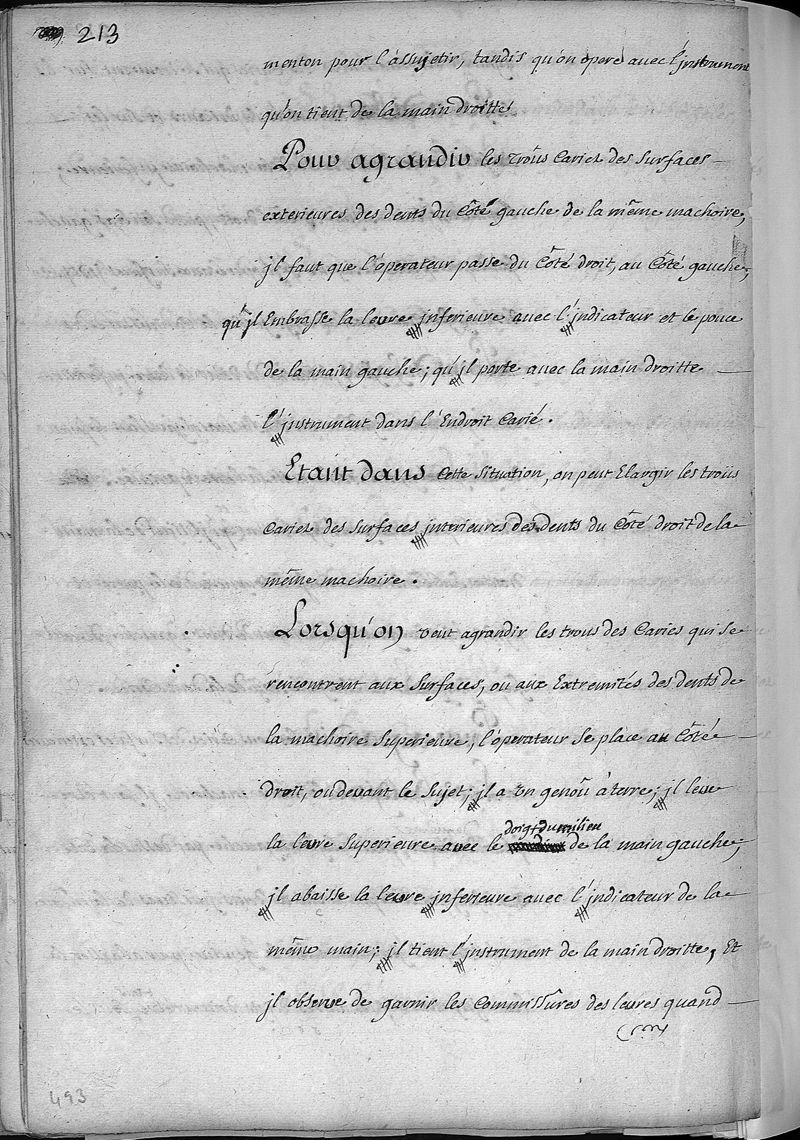 213
menton pour l'assujetir, tandis qu'on opere avec l'jnstrument
qu'on tient de la main droitte.
Pour agrandir les troüs Cariez des surfaces
exterieures des dents du Côté gauche de la même machoire,
jl faut que l'óperateur passe du Côté droit, au Côté gauche,
qu'jl Embrasse la levre jnferieure avec l'jndicateur et le pouce
de la main gauche; qu'jl porte avec la main droitte
l'jnstrument dans l'Endroit Carié.
Etant dans Cette Situation, on peut Elargir les troüs
Cariez des surfaces jnterieures des dents du Côté droit de la
même machoire.
Lorsqu'on veut agrandir les trous des Caries qui se
rencontrent aux surfaces, ou aux Extremités des dents de
la machoire superieure, l'óperateur se place au Côté
droit, ou devant le sujet; jl a un genoü à terre; jl leve
doigt du milieu
la levre superieure avec le de la main gauche,
jl abaisse la levre jnferieure avec l'jndicateur de la
même main; jl tient l'jnstrument de la main droitte, Et
jl observe de garnir les Commissûres des levres quand
493